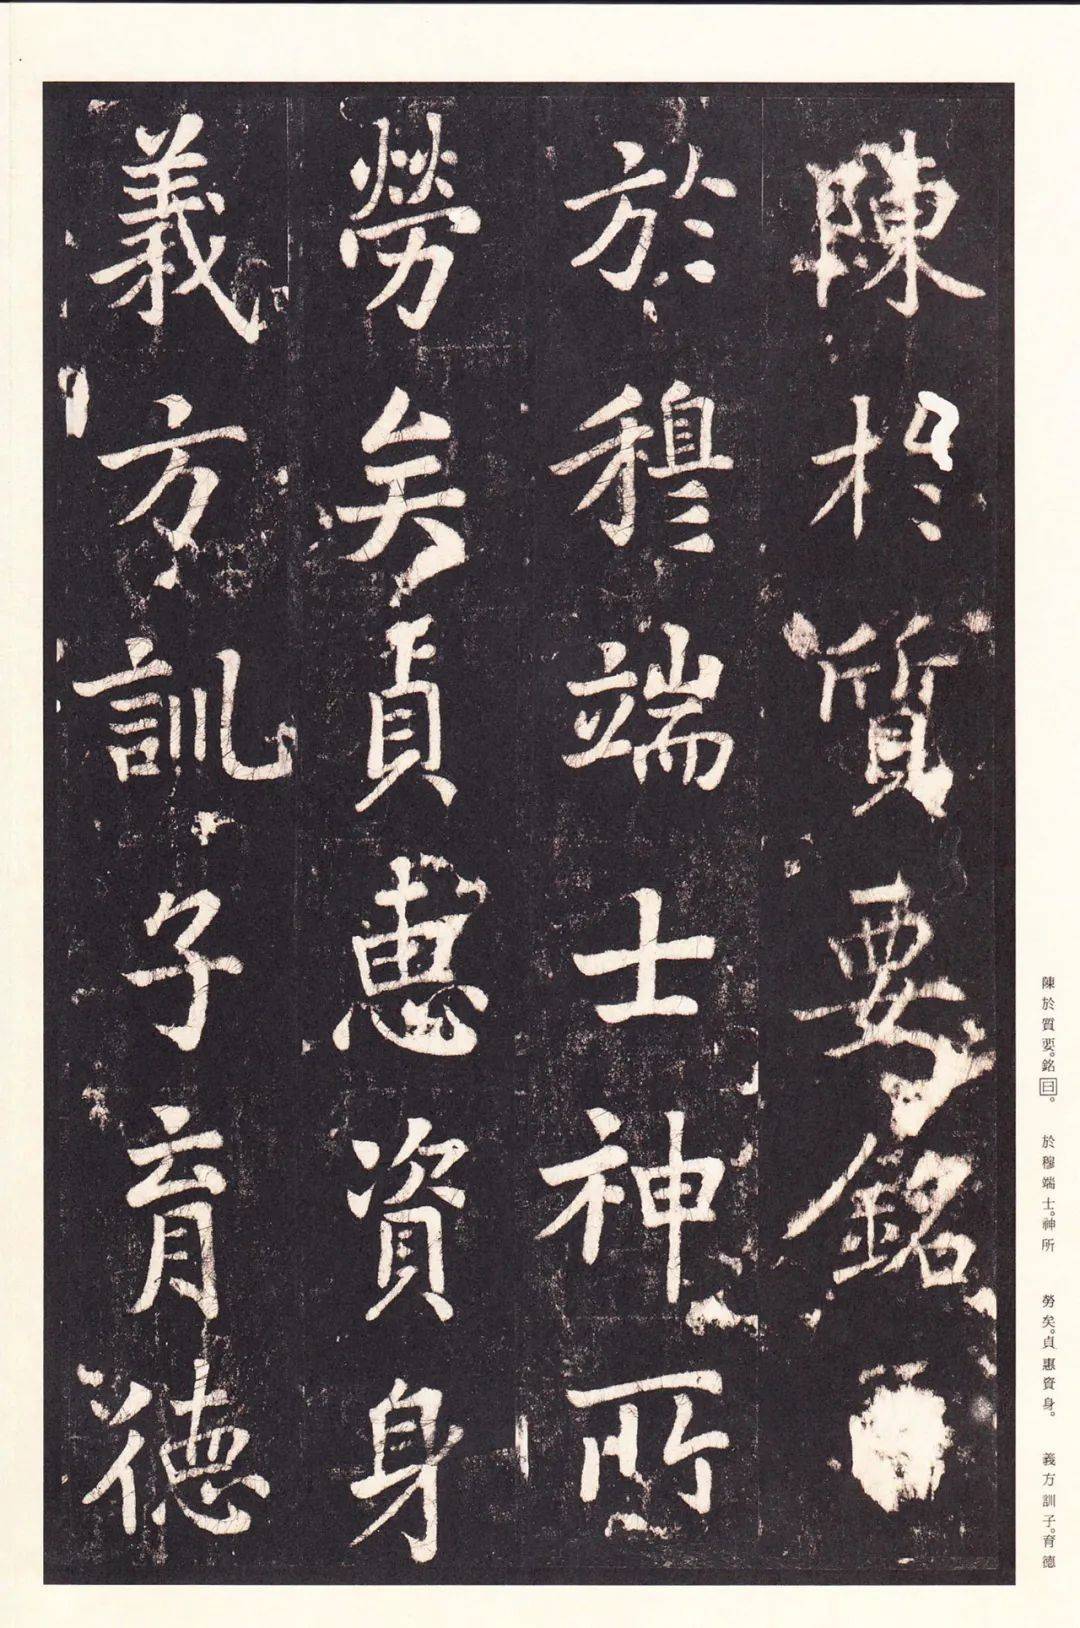 陳於質要銘
於穆端士神所
勞矣貞惠資身
義方訓子育德
陳於質要。銘曰。 於穆端士。神所 勞矣。貞惠資身。 義方訓子。育德